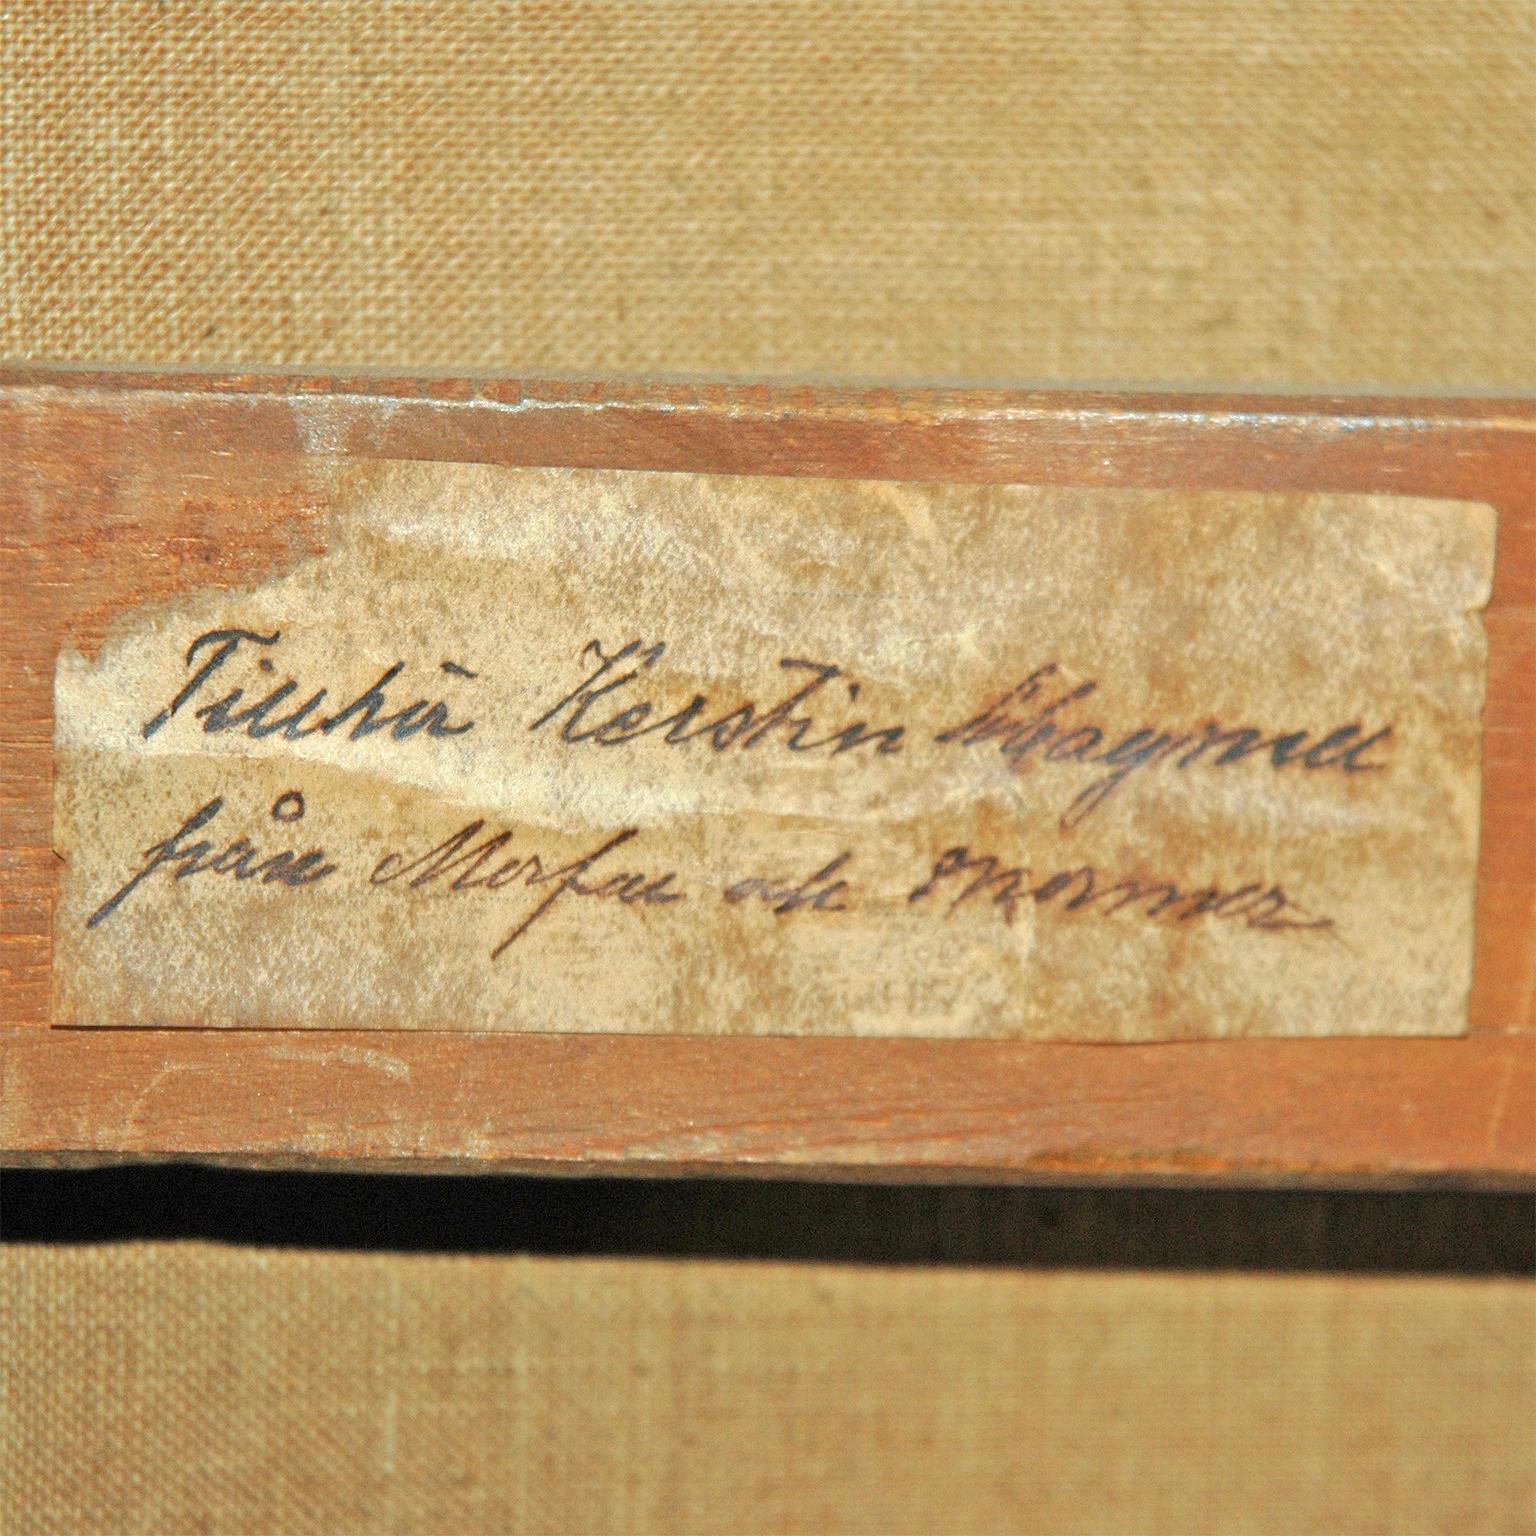 Tillhör Kerstin
från Morfar och Mormor